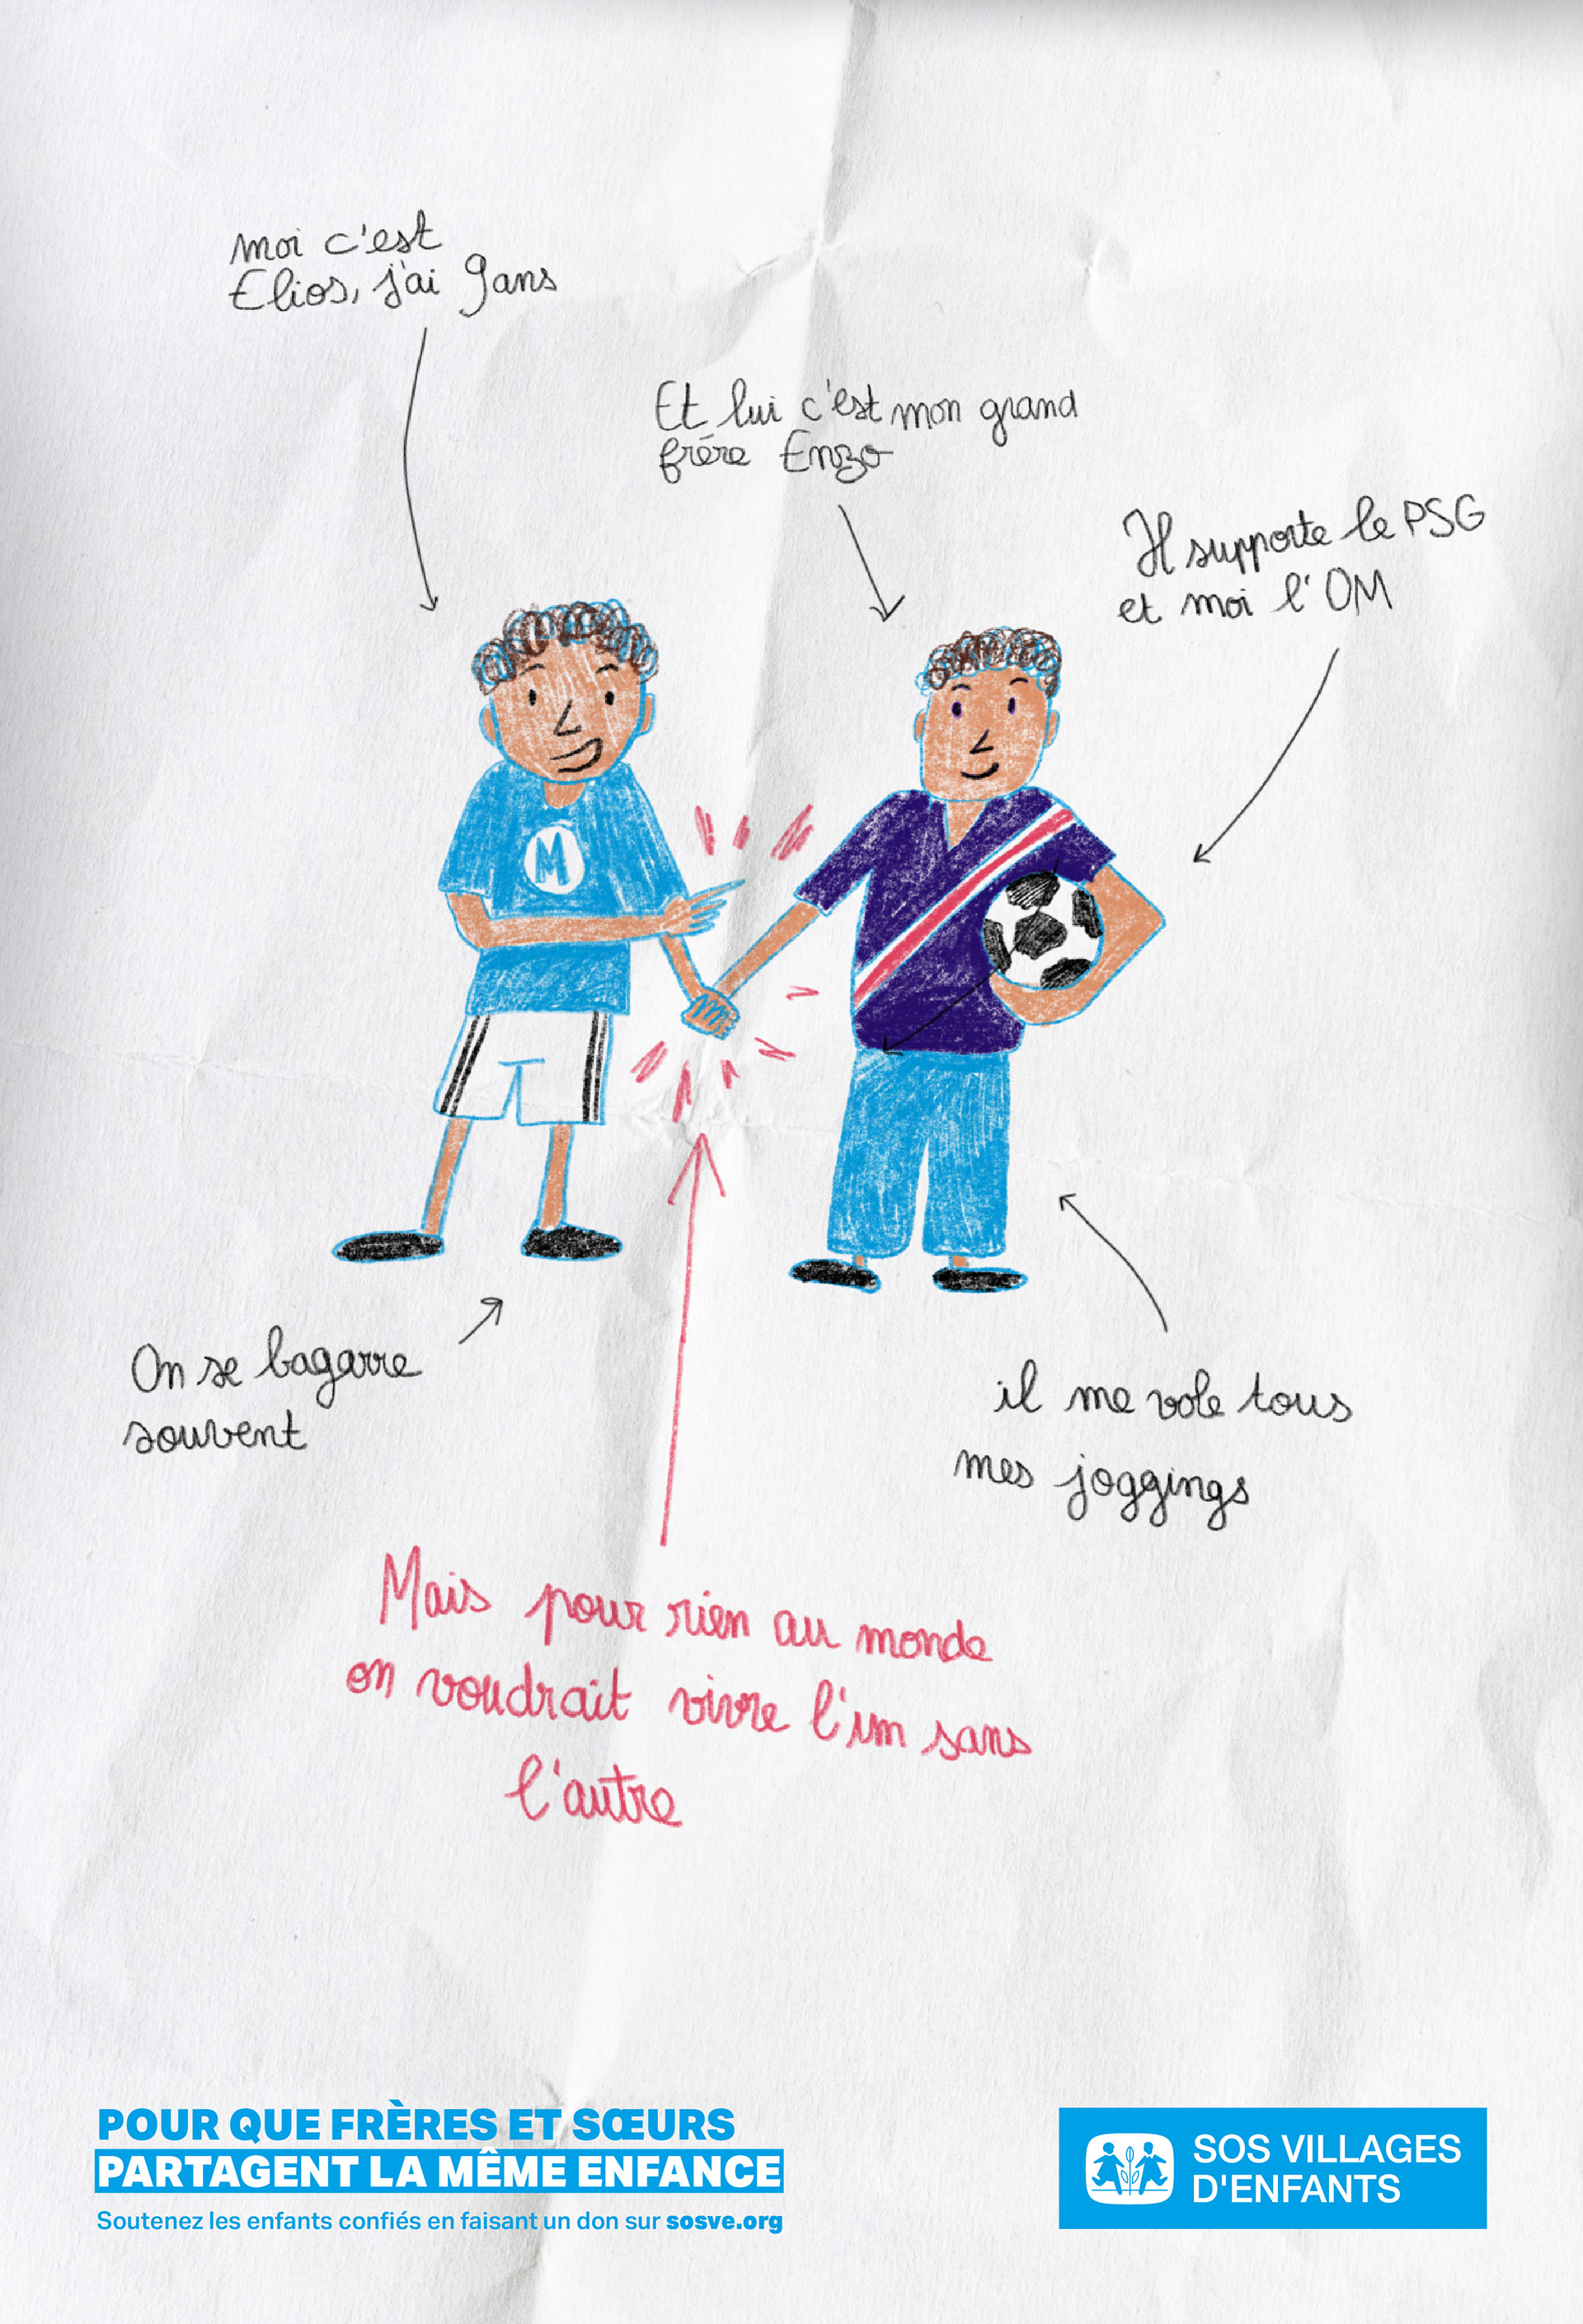 moi c'est
Elios, j'ai 9 ans
Et lui c'est mon grand
frère Enzo
Il supporte le PSG
et moi l'OM
M
On se bagarre
souvent
il me vole tous
mes joggings
Mais pour rien au monde
on voudrait vivre l'un sans
l'autre
POUR QUE FRÈRES ET SŒURS
PARTAGENT LA MÊME ENFANCE
Soutenez les enfants confiés en faisant un don sur sosve.org
SOS VILLAGES
D'ENFANTS